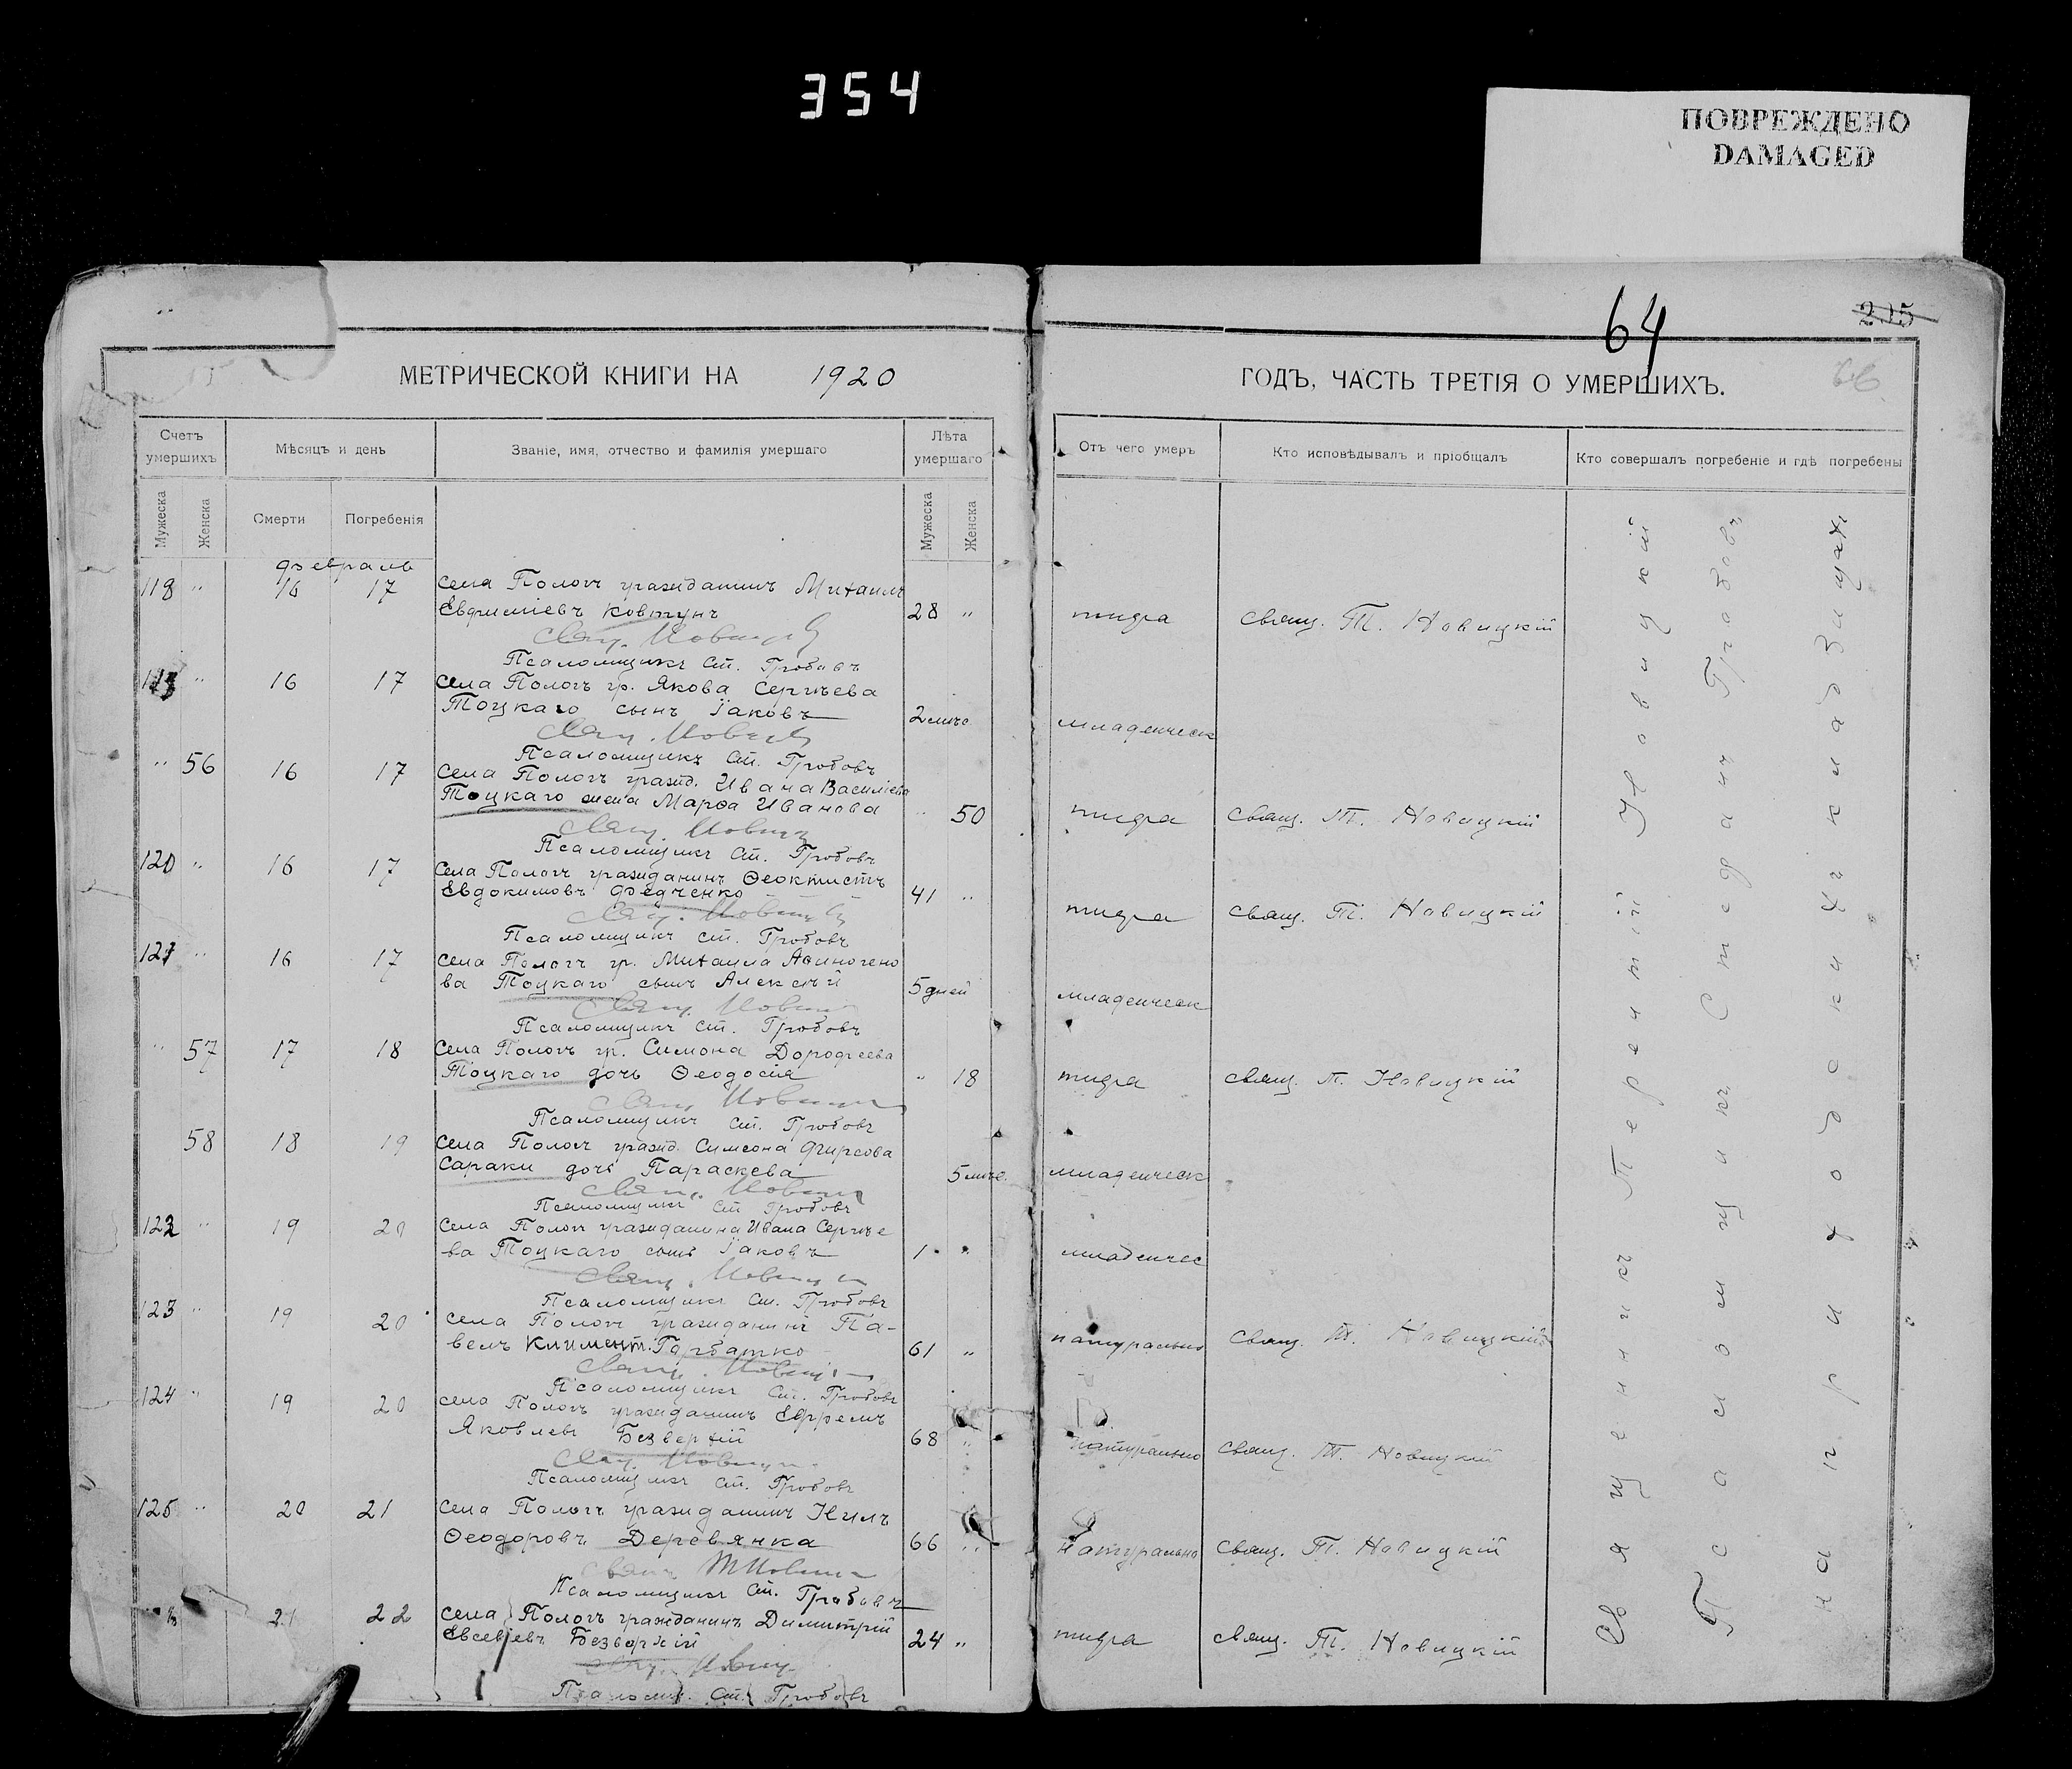 354
ПОВРЕЖДЕНО
DAMAGED
64
205
66
МЕТРИЧЕСКОЙ КНИГИ НА 1920
ГОДЪ, ЧАСТЬ ТРЕТІЯ О УМЕРШИХЪ.
Счетъ умершихъ
Мѣсяцъ и день
Званіе, имя, отчество и фамилія умершаго
Лѣта умершаго
Отъ чего умеръ
Кто исповѣдывалъ и пріобщалъ
Кто совершалъ погребеніе и гдѣ погребены
Мужеска
Женска
Смерти
Погребенія
Мужеска
Женска
февраль
118 " 16 17 села Пологъ гражданинъ Михаилъ
Евфиміевъ Ковтунъ 28 " тифа свящ. Т. Новицкій
Свящ. Новицкій
Псаломщикъ Ст. Гробовъ
" 16 17 села Пологъ гр. Якова Сергѣева
Тоцкаго сынъ Іаковъ 2 младенческ
Свящ. Новицкій
Псаломщикъ Ст. Гробовъ
" 56 16 17 села Пологъ гражд. Ивана Василіева
Тоцкаго жена Марѳа Иванова " 50 тифа свящ. Т. Новицкій
Свящ. Новицкій
Псаломщикъ Ст. Гробовъ
120 " 16 17 села Пологъ гражданинъ Ѳеоктистъ
Евдокимовъ Федченко 41 " тифа свящ. Т. Новицкій
Свящ. Новицкій
Псаломщикъ Ст. Гробовъ
121 " 16 17 села Пологъ гр. Михаила Аѳиногено
ва Тоцкаго сынъ Алексѣй 5 дней младенческ
Свящ. Новицкій
Псаломщикъ Ст. Гробовъ
" 57 17 18 села Пологъ гр. Симона Дорофеева
Тоцкаго дочь Ѳеодосія " 18 тифа свящ. Т. Новицкій
Свящ. Новицкій
Псаломщикъ Ст. Гробовъ
58 18 19 села Пологъ гражд. Симеона Фирсова
Сараки дочь Параскева 5 младенческ
Свящ. Новицкій
Псаломщикъ Ст. Гробовъ
122 " 19 20 села Пологъ гражданина Ивана Сергѣе
ва Тоцкаго сынъ Іаковъ 1 " младенчес
Свящ. Новицкій
Псаломщикъ Ст. Гробовъ
123 " 19 20 села Пологъ гражданинъ Па-
велъ Климент. Горбатко 61 " натурально свящ. Т. Новицкій
Свящ. Новицкій
Псаломщикъ Ст. Гробовъ
124 " 19 20 села Пологъ гражданинъ Ефремъ
Яковлевъ Безверхій 68 " натурально свящ. Т. Новицкій
Свящ. Новицкій
Псаломщикъ Ст. Гробовъ
125 " 20 21 села Пологъ гражданинъ Нилъ
Ѳеодоровъ Деревянка 66 " натурально свящ. Т. Новицкій
Свящ. Т Новицкій
Псаломщикъ Ст. Гробовъ
21 22 села Пологъ гражданинъ Димитрій
Евсевіевъ Безверхій 24 " тифа свящ. Т. Новицкій
Свящ. Новицкій
Псаломщ. Ст. Гробовъ
Священникъ Терентій Новицкій
Псаломщикъ Стефанъ Гробовъ
на приходском кладбищѣ